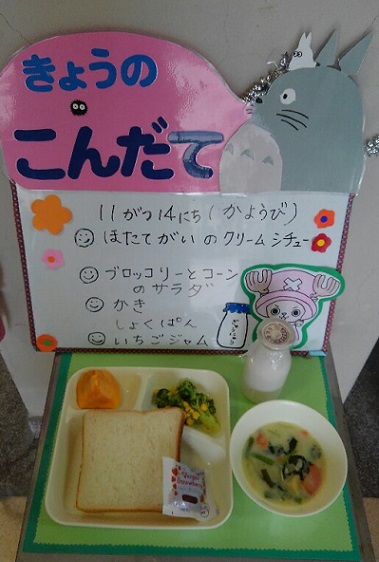 きょうの
こんだて
11がつ14にち(かようび)
ほたてがいのクリームシチュー
ブロッコリーとコーン
のサラダ
かき
しょくぱん
いちごジャム